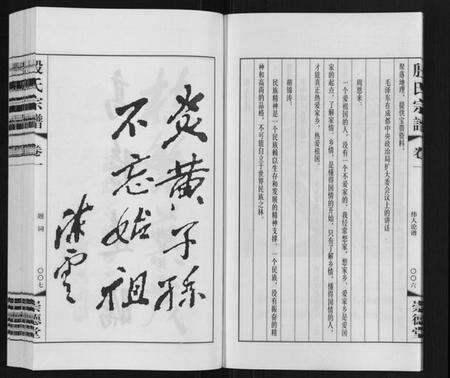 殷氏宗譜
卷一
伟人论谱
〇〇六
崇德堂
聚落地理，提供宝贵资料。
毛泽东在成都中央政治局扩大委会议上的讲话
周恩来：
一个爱祖国的人，没有一个不爱家的。我经常想家，想家乡。爱家乡是爱国
家的起点。了解家情、乡情，是懂得国情的开始，只有了解乡情，懂得国情的人，
才能真正热爱家乡，热爱祖国。
胡锦涛：
民族精神是一个民族赖以生存和发展的精神支撑。一个民族，没有振奋的精
神和高尚的品格，不可能自立于世界民族之林。
炎黄子孫
不忘始祖
陈雲
殷氏宗譜
卷一
题词
〇〇七
崇德堂